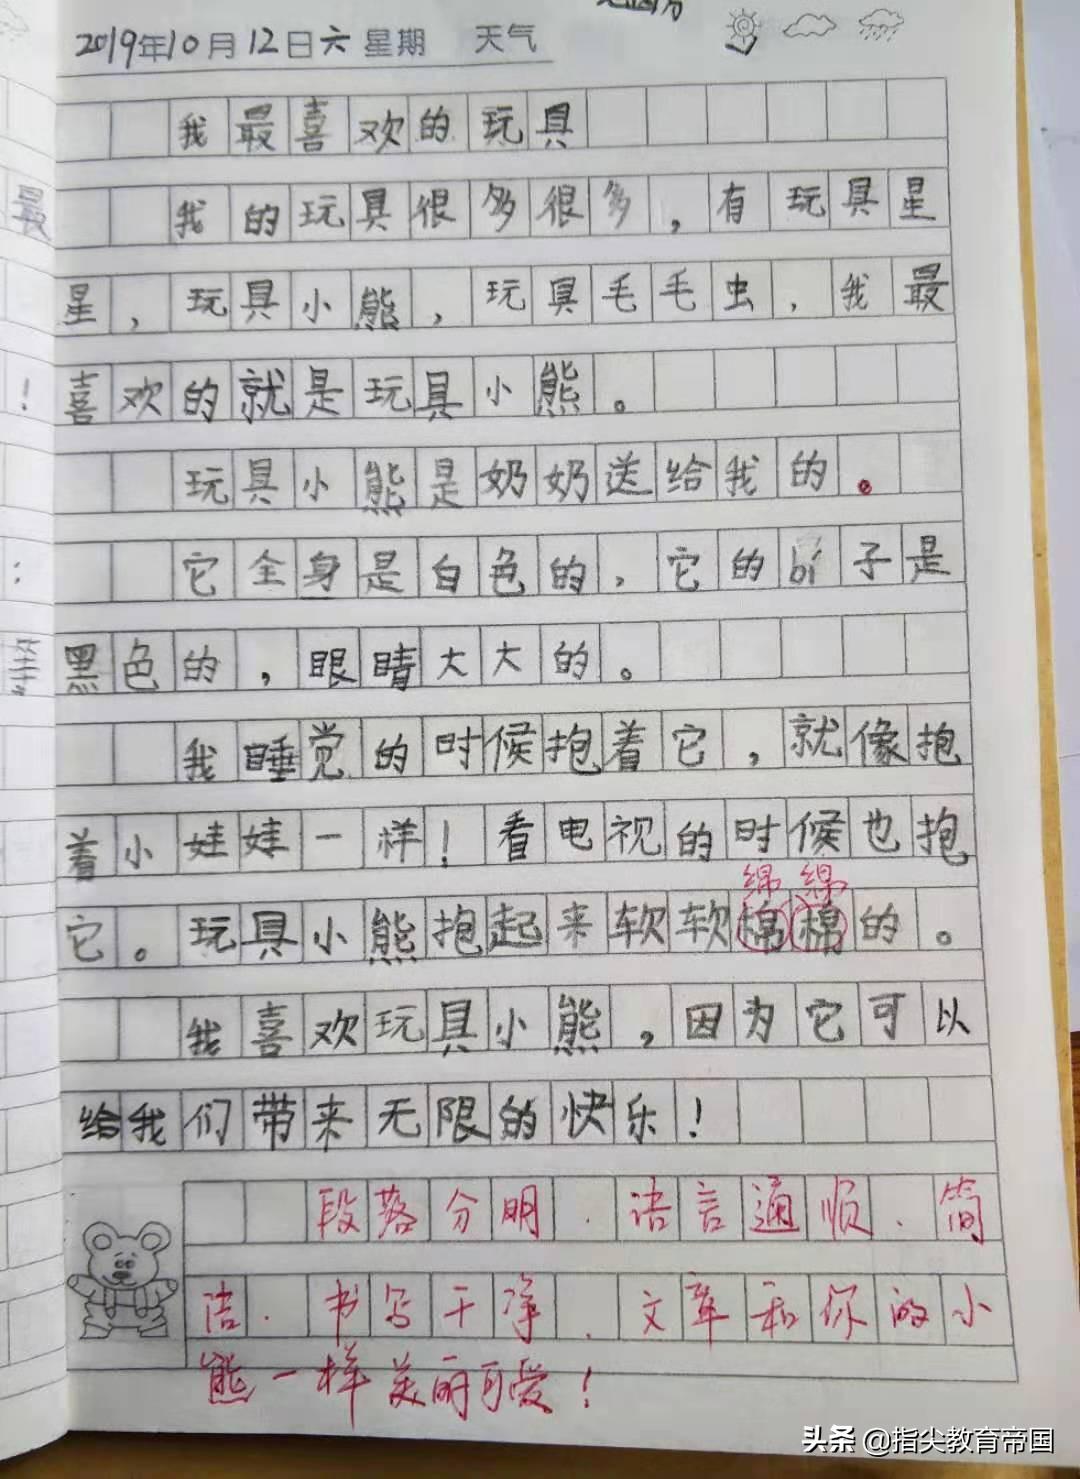 2019年10月12日六 星期 天气
我最喜欢的玩具
我的玩具很多很多，有玩具星
星，玩具小熊，玩具毛毛虫，我最
喜欢的就是玩具小熊。
玩具小熊是奶奶送给我的。
它全身是白色的，它的bí子是
黑色的，眼睛大大的。
我睡觉的时候抱着它，就像抱
着小娃娃一样！看电视的时候也抱
绵绵
它。玩具小熊抱起来软软棉棉的。
我喜欢玩具小熊，因为它可以
给我们带来无限的快乐！
段落分明．语言通顺．简
洁．书写干净．文章和你的小
熊一样美丽可爱！
最
！
：
头条 @指尖教育帝国